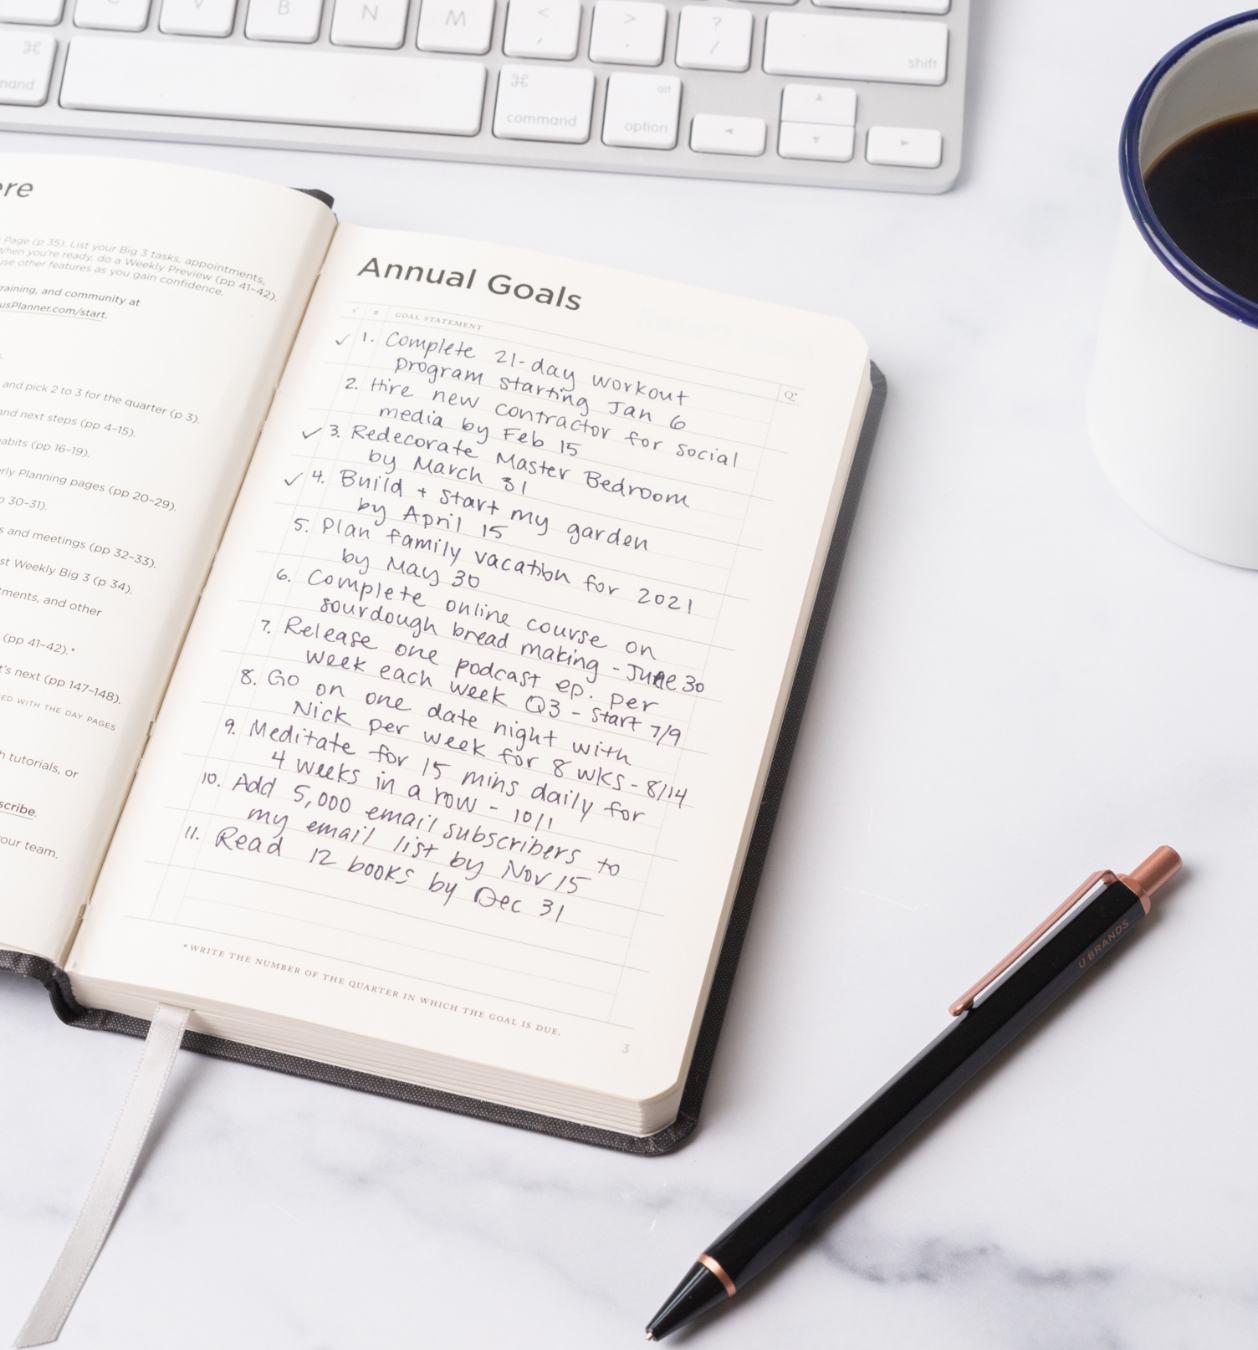 C
V
B
N
M
<
,
>
.
?
/
shift
⌘
mand
⌘
command
alt
option
ere
Page (p 35). List your Big 3 tasks, appointments,
When you're ready, do a Weekly Preview (pp 41–42).
use other features as you gain confidence.
raining, and community at
usPlanner.com/start.
and pick 2 to 3 for the quarter (p 3).
and next steps (pp 4–15).
abits (pp 16–19).
rly Planning pages (pp 20–29).
p 30–31).
s and meetings (pp 32–33).
st Weekly Big 3 (p 34).
tments, and other
(pp 41–42).*
t's next (pp 147–148).
ED WITH THE DAY PAGES
h tutorials, or
scribe.
our team.
Annual Goals
✓ # GOAL STATEMENT Q*
✓ 1. Complete 21-day workout
program starting Jan 6
2. Hire new contractor for social
media by Feb 15
✓ 3. Redecorate Master Bedroom
by March 31
✓ 4. Build + start my garden
by April 15
5. Plan family vacation for 2021
by May 30
6. Complete online course on
sourdough bread making - June 30
7. Release one podcast ep. per
week each week Q3 - start 7/9
8. Go on one date night with
Nick per week for 8 wks - 8/14
9. Meditate for 15 mins daily for
4 weeks in a row - 10/1
10. Add 5,000 email subscribers to
my email list by Nov 15
11. Read 12 books by Dec 31
*WRITE THE NUMBER OF THE QUARTER IN WHICH THE GOAL IS DUE.
3
U BRANDS